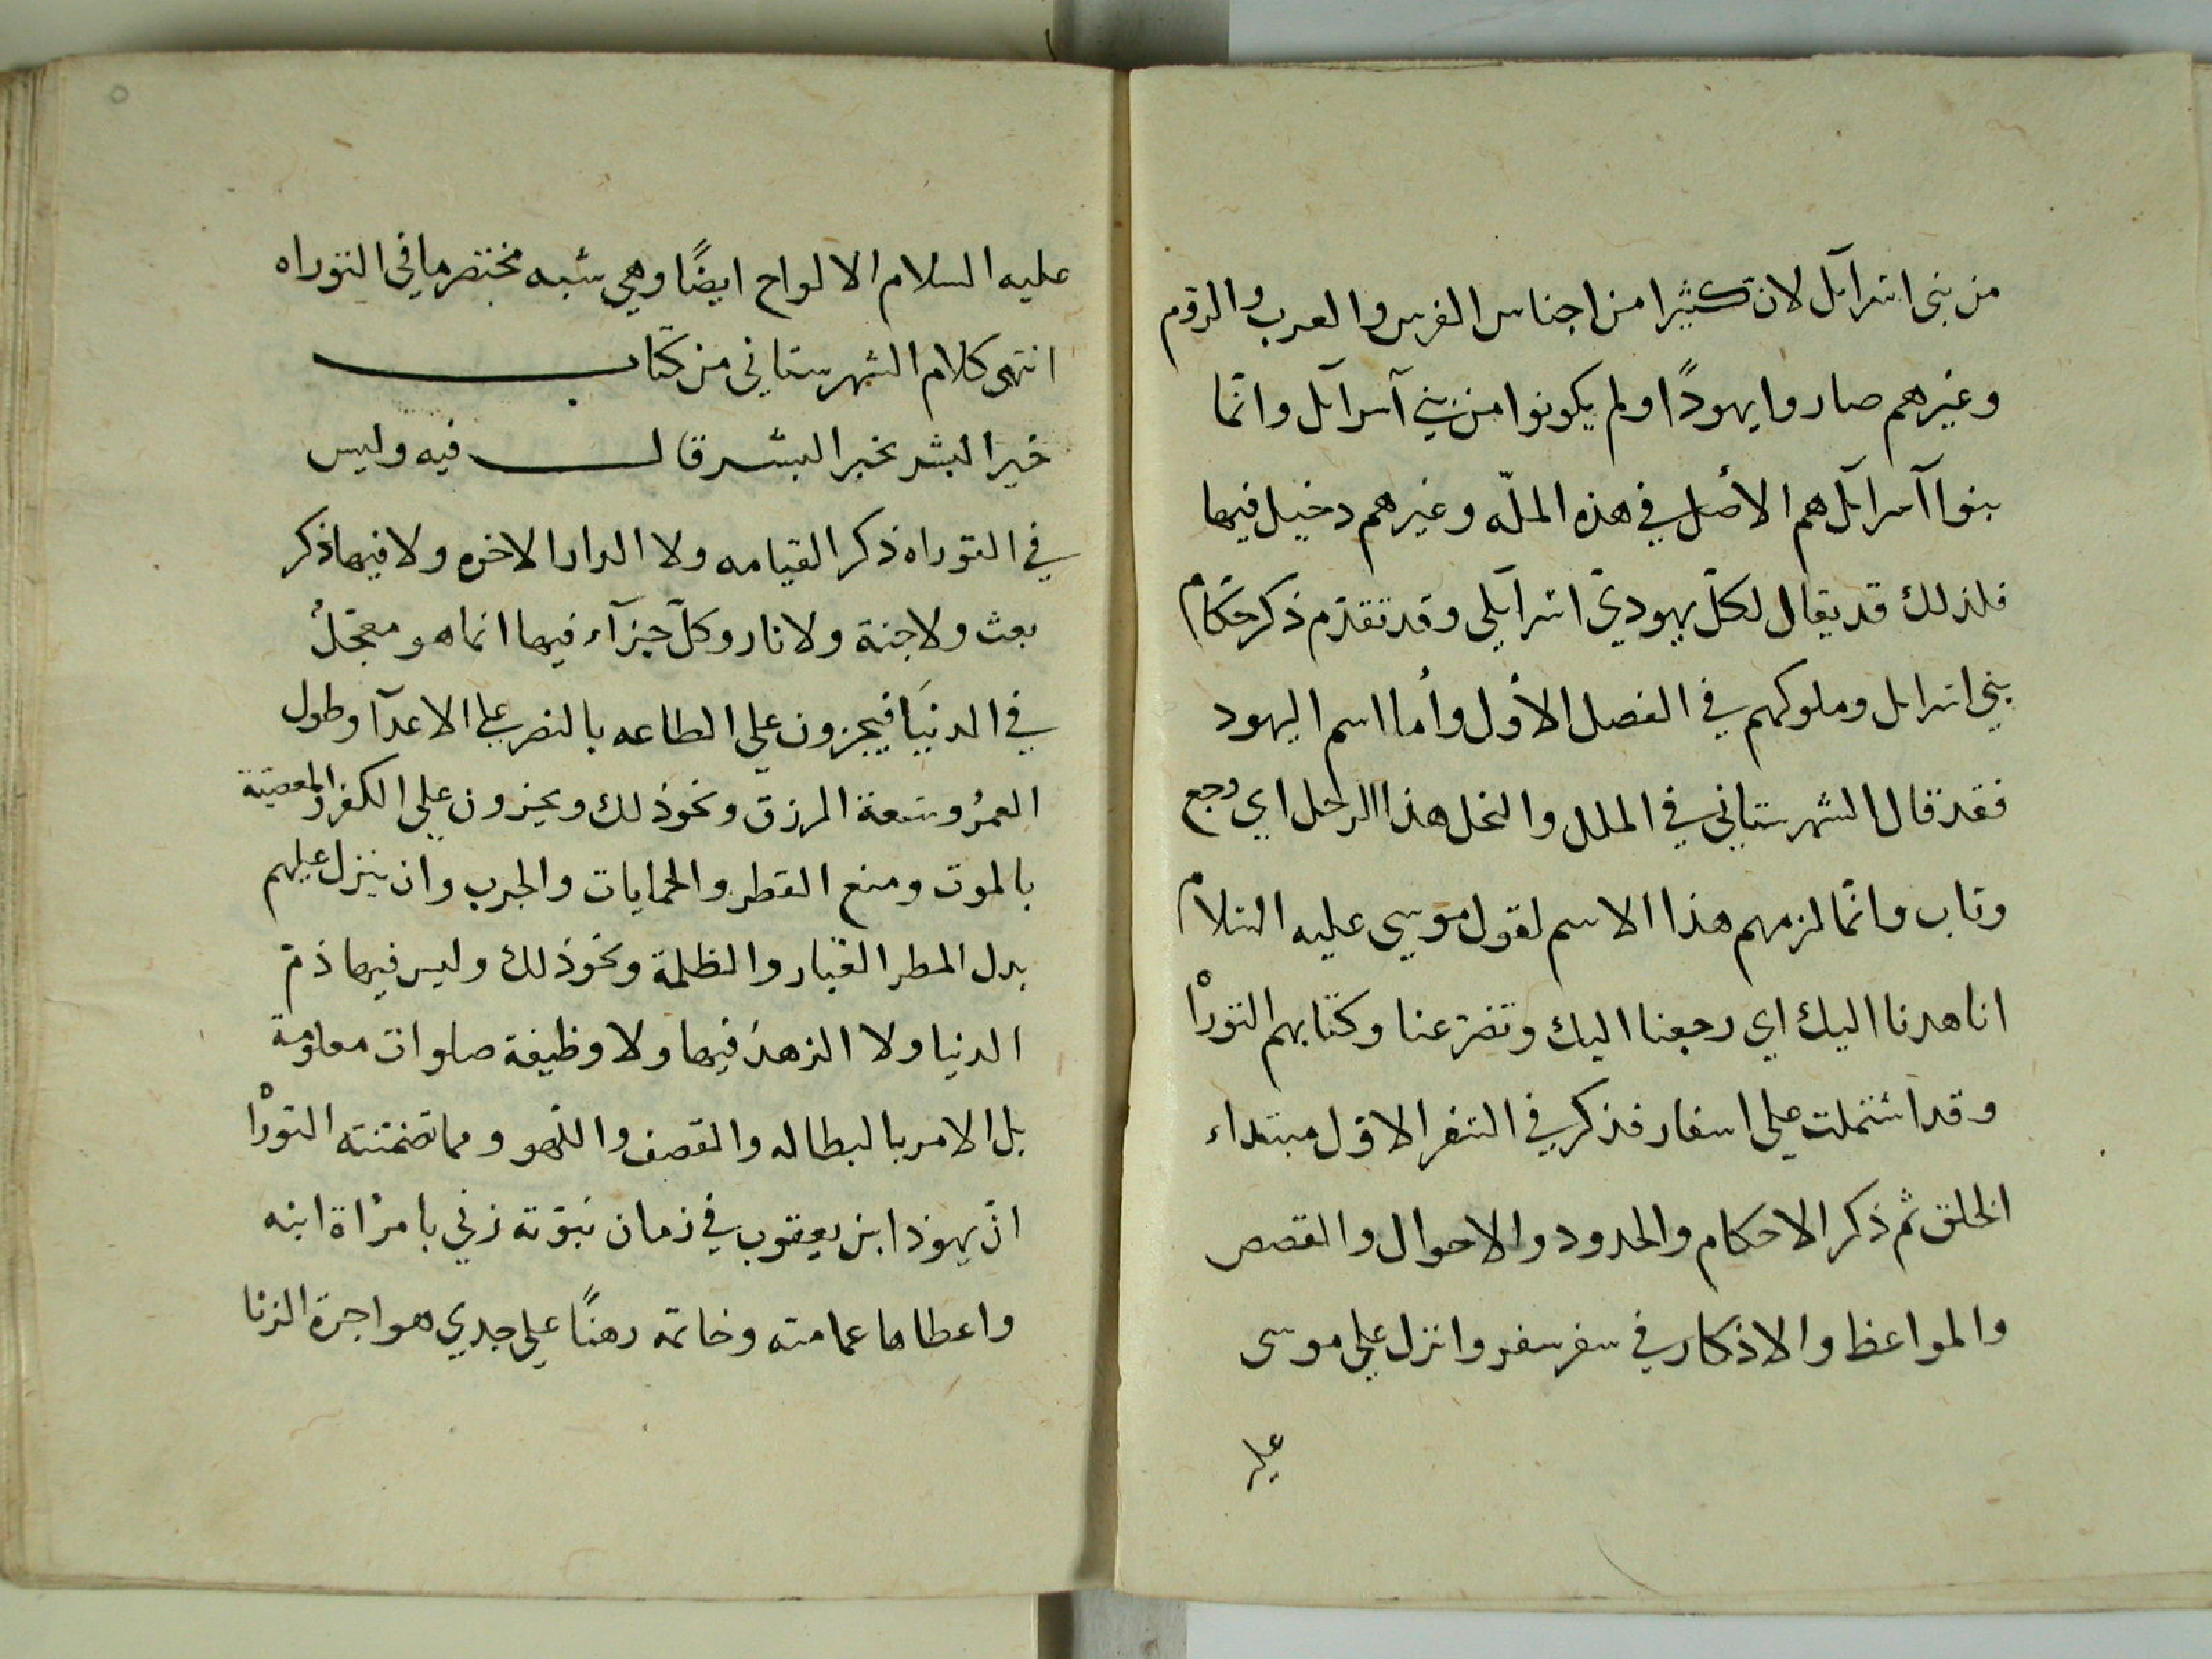 من بني اسرآئل لان كثيرا من اجناس الفرس والعرب والروم
وغيرهم صاروا يهودًا ولم يكونوا من بني آسرآئل وانّما
بنوا آسرآئل هم الأصل في هذه الملّه وغيرهم دخيل فيها
فلذلك قد يقال لكلّ يهوديّ اسرآئلي وقد تقدّم ذكر حكّام
بني اسرايل وملوكهم في الفصل الأول وأما اسم اليهود
فقد قال الشهرستاني في الملل والنحل هذا الرجل اي رجع
وتاب وانّما لزمهم هذا الاسم لقول موسي عليه السلام
انا هدنا اليك اي رجعنا اليك وتضرّعنا وكتابهم التوراه
وقد اشتملت علي اسفار فذكر في السفر الاوّل مبتداء
الخلق ثم ذكر الاحكام والحدود والاحوال والقصص
والمواعظ والاذكار في سفر سفر وانزل علي موسى
عليه
٥
عليه السلام الالواح ايضًا وهي شبه مختصر ما في التوراه
انتهى كلام الشهرستاني من كتاب
خير البشر بخير البشر قال فيه وليس
في التوراه ذكر القيامه ولا الدار الاخره ولا فيها ذكر
بعث ولا جنة ولا نار وكلّ جزآء فيها انما هو معجّلٌ
في الدنيَا فيجزون علي الطاعه بالنصر علي الاعدآ وطول
العمرُ وسعة الرزق ونحو ذلك ويجزون علي الكفر والمعصية
بالموت ومنع القطر والحمايات والجرب وان ينزل عليهم
بدل المطر الغبار والظلمة ونحو ذلك وليس فيها ذمّ
الدنيا ولا الزهد فيها ولا وظيفة صلوات معلومة
بل الامر بالبطاله والقصف واللهو ومما تضمّنته التوراه
انّ يهوذا ابن يعقوب في زمان نبوّته زني بامرُاة ابنه
واعطاها عمامته وخاتمه رهنًا علي جدي هو اجرة الزنا